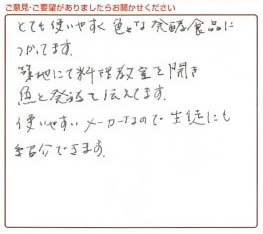 ご意見・ご要望がありましたらお聞かせください
とても使いやすく色々な発酵食品に
つかてます。
築地にて料理教室を開き
魚と発酵を伝えてます。
使いやすいメーカーなので生徒にも
紹介できます。